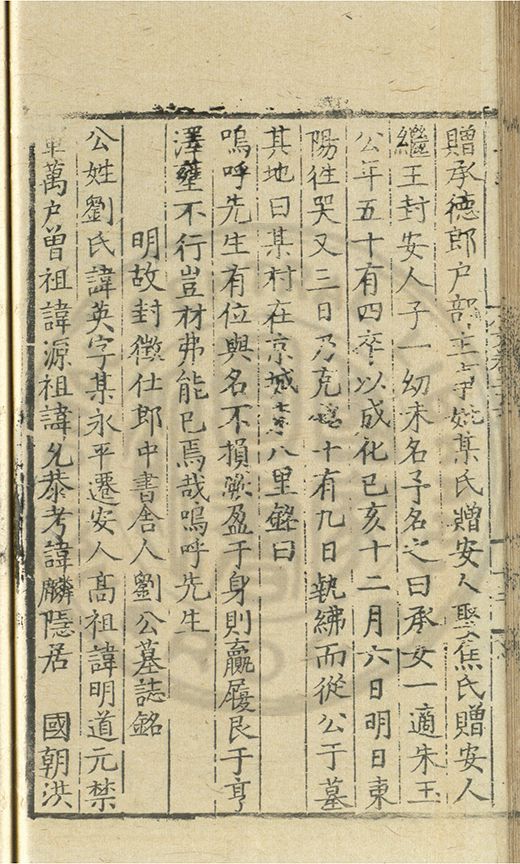 贈承德郎户部主事妣某氏贈安人娶焦氏贈安人
繼王封安人子一幼未名予名之曰承女一適朱玉
公年五十有四卒以成化已亥十二月六日明日東
陽往哭又三日乃克 十有九日執紼而從公于墓
其地曰某村在京城 八里銘曰
嗚呼先生有位與名不損 盈于身則贏履艮于亨
澤壅不行豈材弗能已焉哉嗚呼先生
明故封徵仕郎中書舍人劉公墓誌銘
公姓劉氏諱英字某永平遷安人高祖諱明道元禁
軍萬户曾祖諱源祖諱允恭考諱麟隱居 國朝洪